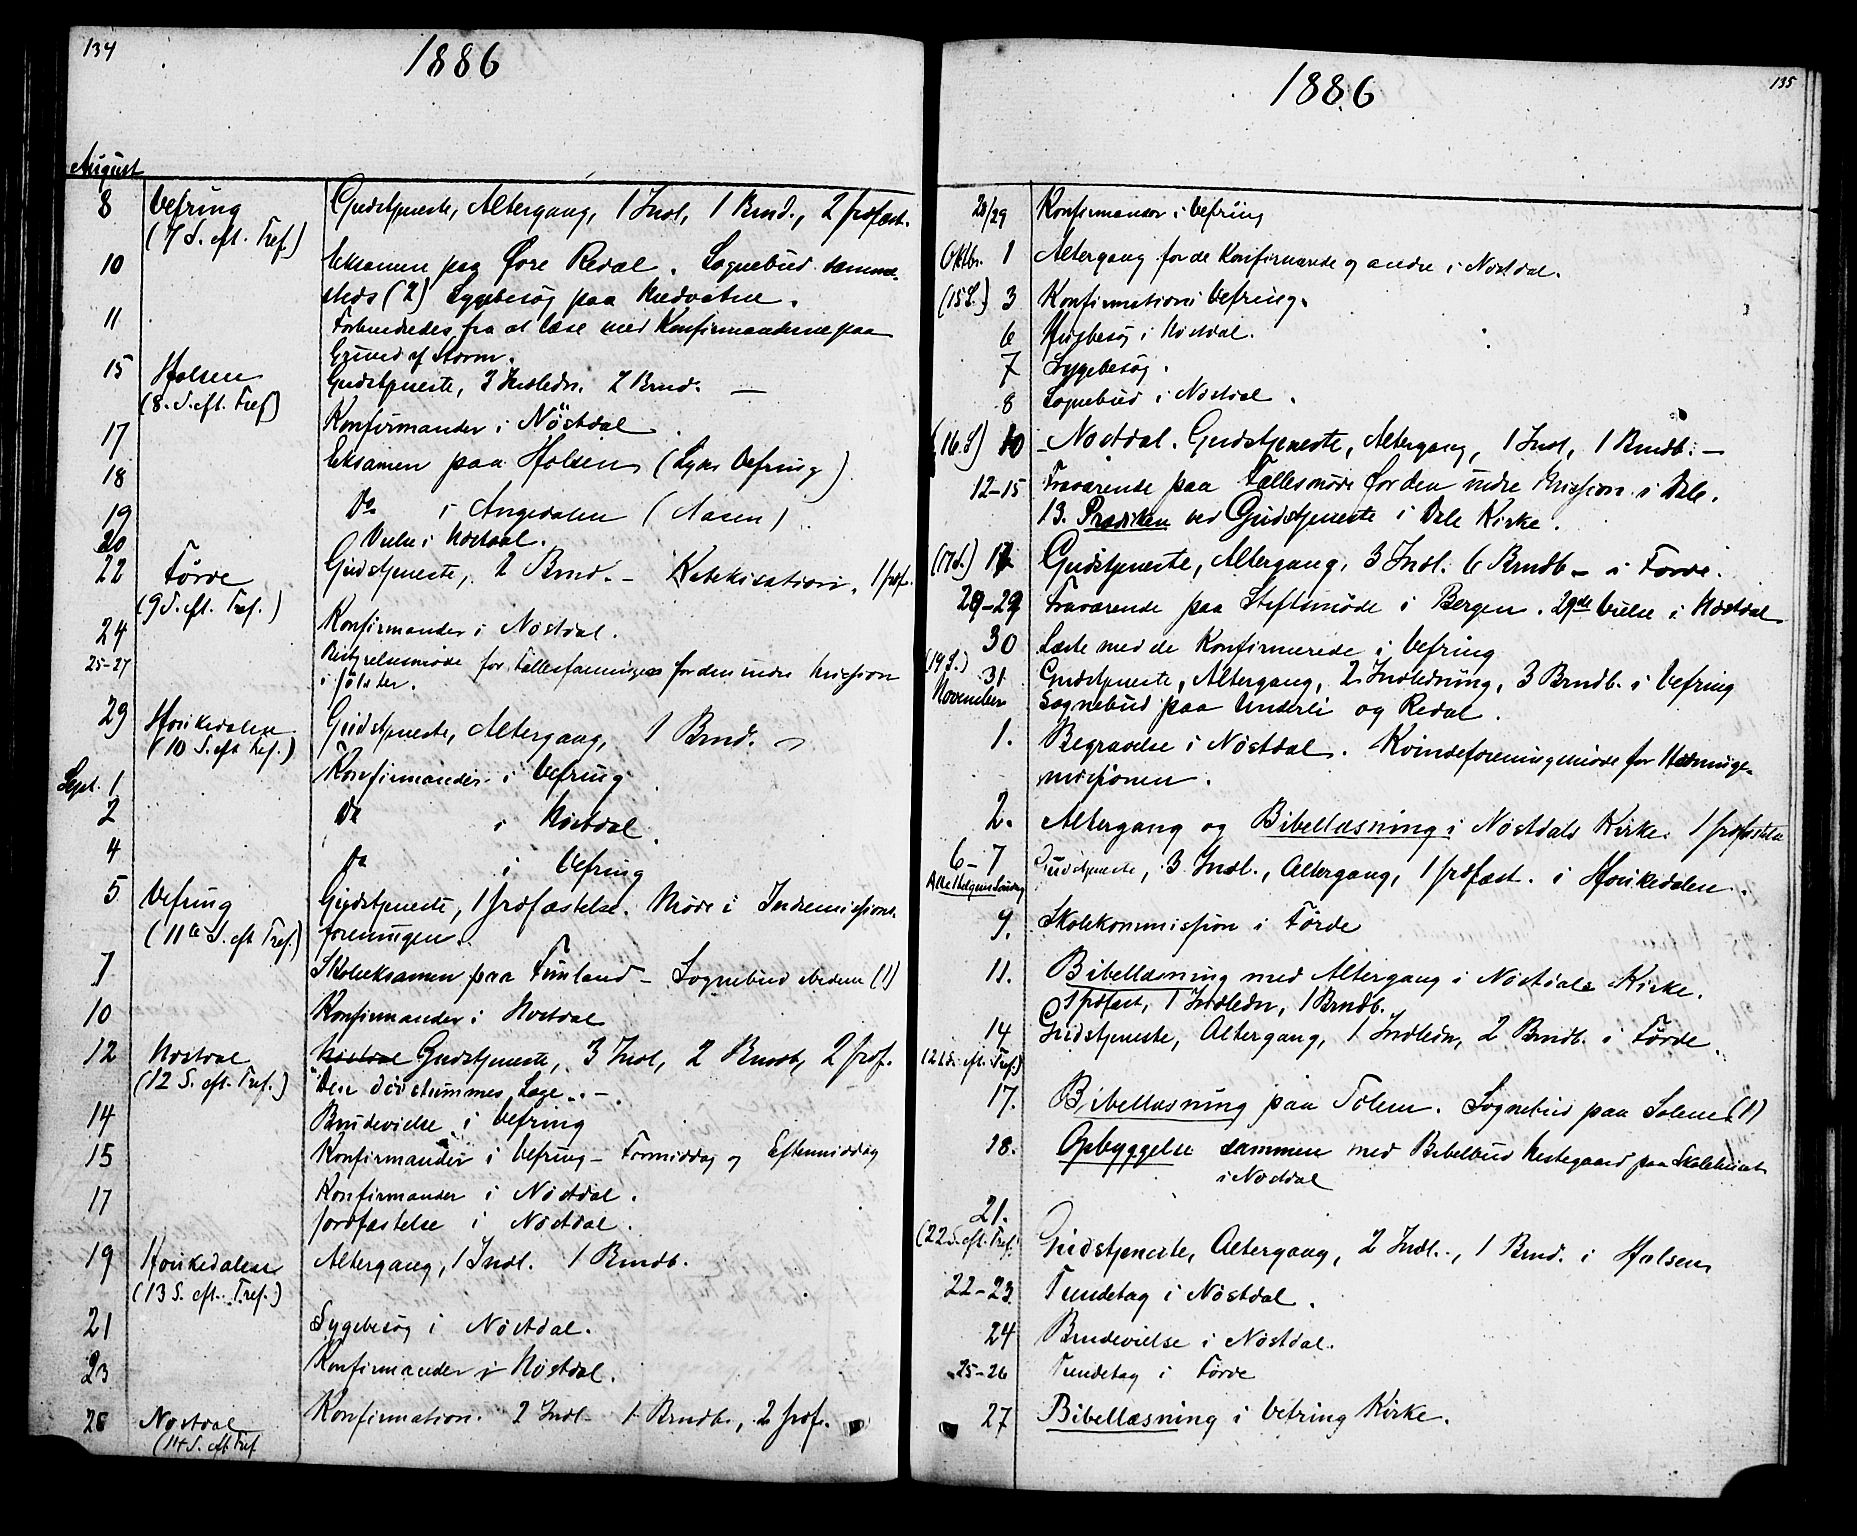 134
1886
August
8 Vefring Gudstjeneste, Altergang, 1 Indl, 1 Brnd., 2 Jrdfæst.
(7 S. eft. Tref.)
10 Eksamen paa Øvre Redal. Sognebud samme-
steds (2) Sygebesøg paa Nedvatne.
11 Forhindredes fra at læse med Konfirmanderne paa
Grund af Storm.
15 Holsen Gudstjeneste, 3 Indledn. 2 Brnd. —
(8. S. eft. Tref)
17 Konfirmander i Nøstdal
18 Eksamen paa Holsen (Vefring)
19 Do i Angedalen (Aasen)
20 Vielse i Nøstdal.
22 Førde Gudstjeneste, 2 Brnd. – Katekisation. 1 Jrdf.
(9 S. eft. Tref.)
24 Konfirmander i Nøstdal.
25-27 Bestyrelsesmøde for Fællesforeningen for den indre Mission
i Jølster.
29 Holkedalen Gudstjeneste, Altergang, 1 Brnd.
(10 S. eft Tref.)
Sept. 1 Konfirmander i Vefring
2 Do i Nøstdal
4 Do i Vefring
5 Vefring Gudstjeneste, 1 Jrdfæstelse. Møde i Indremissions-
(11te S. eft Tref.) foreningen.
7 Skoleeksamen paa Fimland – Sognebud (1)
10 Konfirmander i Nøstdal
12 Nøstdal Nøstdal Gudstjeneste, 3 Indl, 2 Brndb, 2 Jrdf.
(12 S. eft. Tref.) "Den døvstummes Sag". –
14 Brudevielse i Vefring
15 Konfirmander i Vefring – Formiddag og Eftermiddag
17 Konfirmander i Nøstdal.
Jordfæstelse i Nøstdal.
19 Holkedalen Altergang, 1 Indl. 1 Brndb.
(13 S. eft. Tref.)
21 Sygebesøg i Nøstdal.
23 Konfirmander i Nøstdal.
26 Nøstdal Konfirmation. 2 Indl. 1 Brndb., 2 Jrdf.
(14 S. eft Tref
135
1886
28/29 Konfirmander i Vefring
Oktbr. 1 Altergang for de Konfirmerede og andre i Nøstdal.
(15 S.) 3 Konfirmation i Vefring.
6 Husbesøg i Nøstdal.
7 Sygebesøg.
8 Sognebud i Nøstdal.
(16 S) 10 Nøstdal. Gudstjeneste, Altergang, 1 Indl, 1 Brndb. –
12-15 Fraværende paa Fællesmøde for den indre Mission i Dale.
13. Prædiken ved Gudstjeneste i Dale Kirke.
(17 S.) 17 Gudstjeneste, Altergang, 3 Indl. 6 Brndb – i Førde.
20-29 Fraværende paa Stiftsmøde i Bergen. 29de Vielse i Nøstdal
30 Læste med de Konfirmerede i Vefring
(19 S.) 31 Gudstjeneste, Altergang, 2 Indledning, 3 Brndb. i Vefring
November Sognebud paa Underli og Redal.
1. Begravelse i Nøstdal. Kvindeforeningsmøde for Hedninge-
missionen.
2. Altergang og Bibellæsning i Nøstdals Kirke. 1 Jrdfæstelse
6-7 Gudstjeneste, 3 Indl., Altergang, 1 Jrdfæst. i Holkedalen.
Alle Helgens Søndag
9. Skolekommission i Førde
11. Bibellæsning med Altergang i Nøstdals Kirke.
1 Jrdfæst, 1 Indledn, 1 Brndb.
14 Gudstjeneste, Altergang, 1 Indledn, 2 Brndb. i Førde.
(21 S. eft. Tref.)
17. Bibellæsning paa Solem. Sognebud paa Solem (1)
18. Opbyggelse sammen med Bibelbud Nestegaard paa Skolehuset
i Nøstdal
21.
(22 S. eft. Tref. Gudstjeneste, Altergang, 2 Indl., 1 Brnd. i Holsen
22-23 Tiendetag i Nøstdal.
24 Brudevielse i Nøstdal.
25-26 Tiendetag i Førde
27 Bibellæsning i Vefring Kirke.